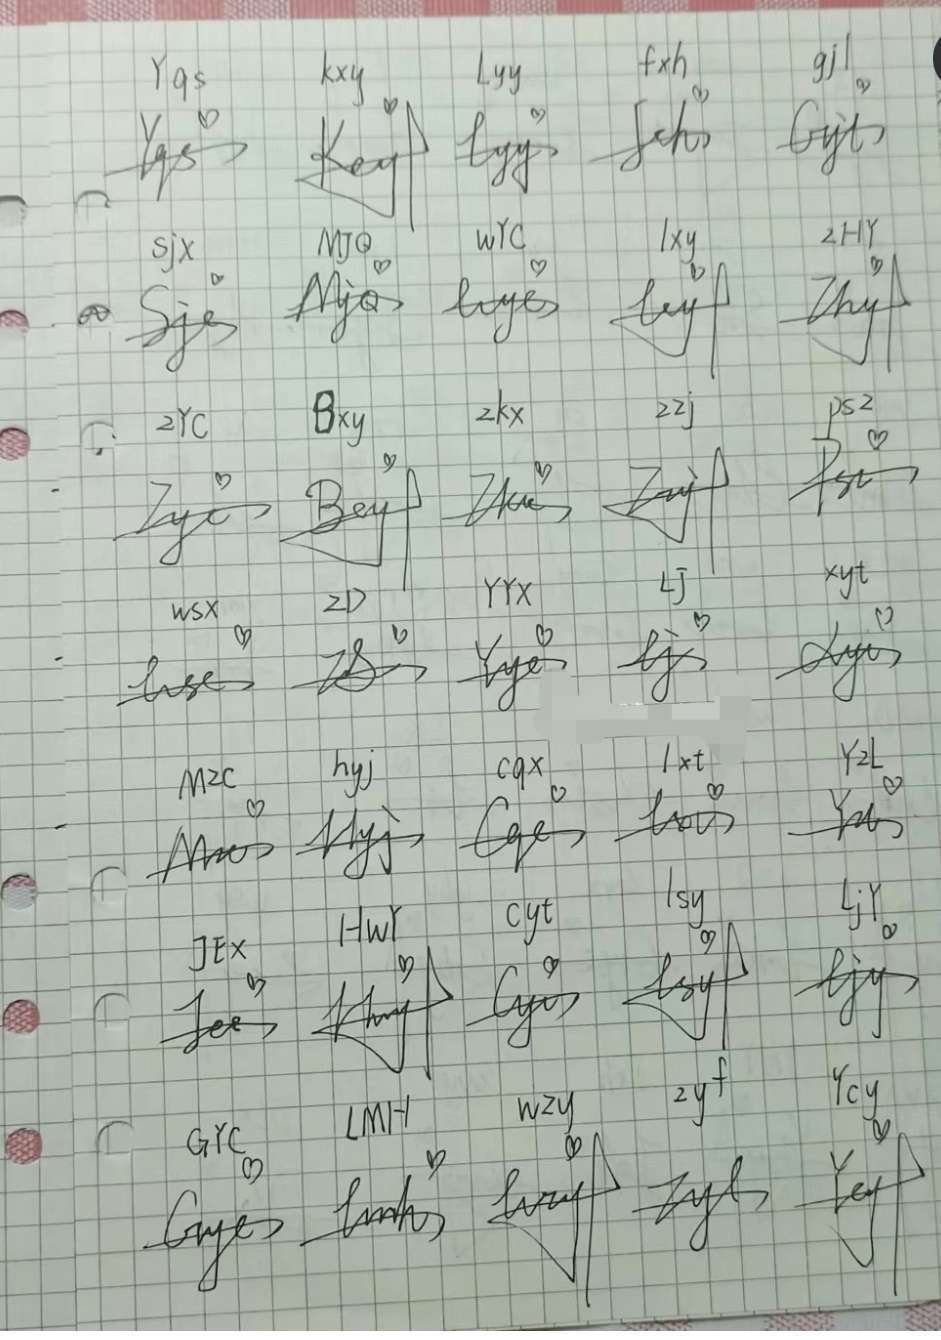 Yqs kxy Lyy fxh gjl
Yqs Key Lyy fch Gyt
sjx MJQ wYC lxy zHY
Sje MjQ wye ley Zhy
zYC Bxy zkx zzj psz
Zyc Bey Zke Zzj Psz
wsx zD YYX Lj xyt
wse ZD Yye Lj xyt
MzC hyj cqx lxt YzL
Hyj Cqe
JEX HwY cyt lsy LjY
Jee Hwy Cyt Lsy Ljy
GYC LMH wzy zyf Ycy
Gye Lmh wzy zyf Yey